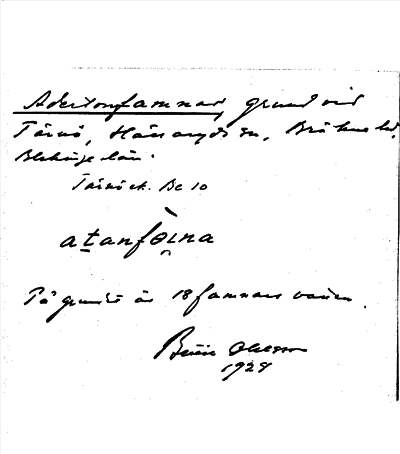 Adertonfamnar, grund vid
Tärnö, Hällaryds sn, Bräkne hd,
Blekinge län.
Tärnö ek. Bl. 10
atanfòɩna
På grundet är 18 famnars vatten.
Börje Olsson
1928